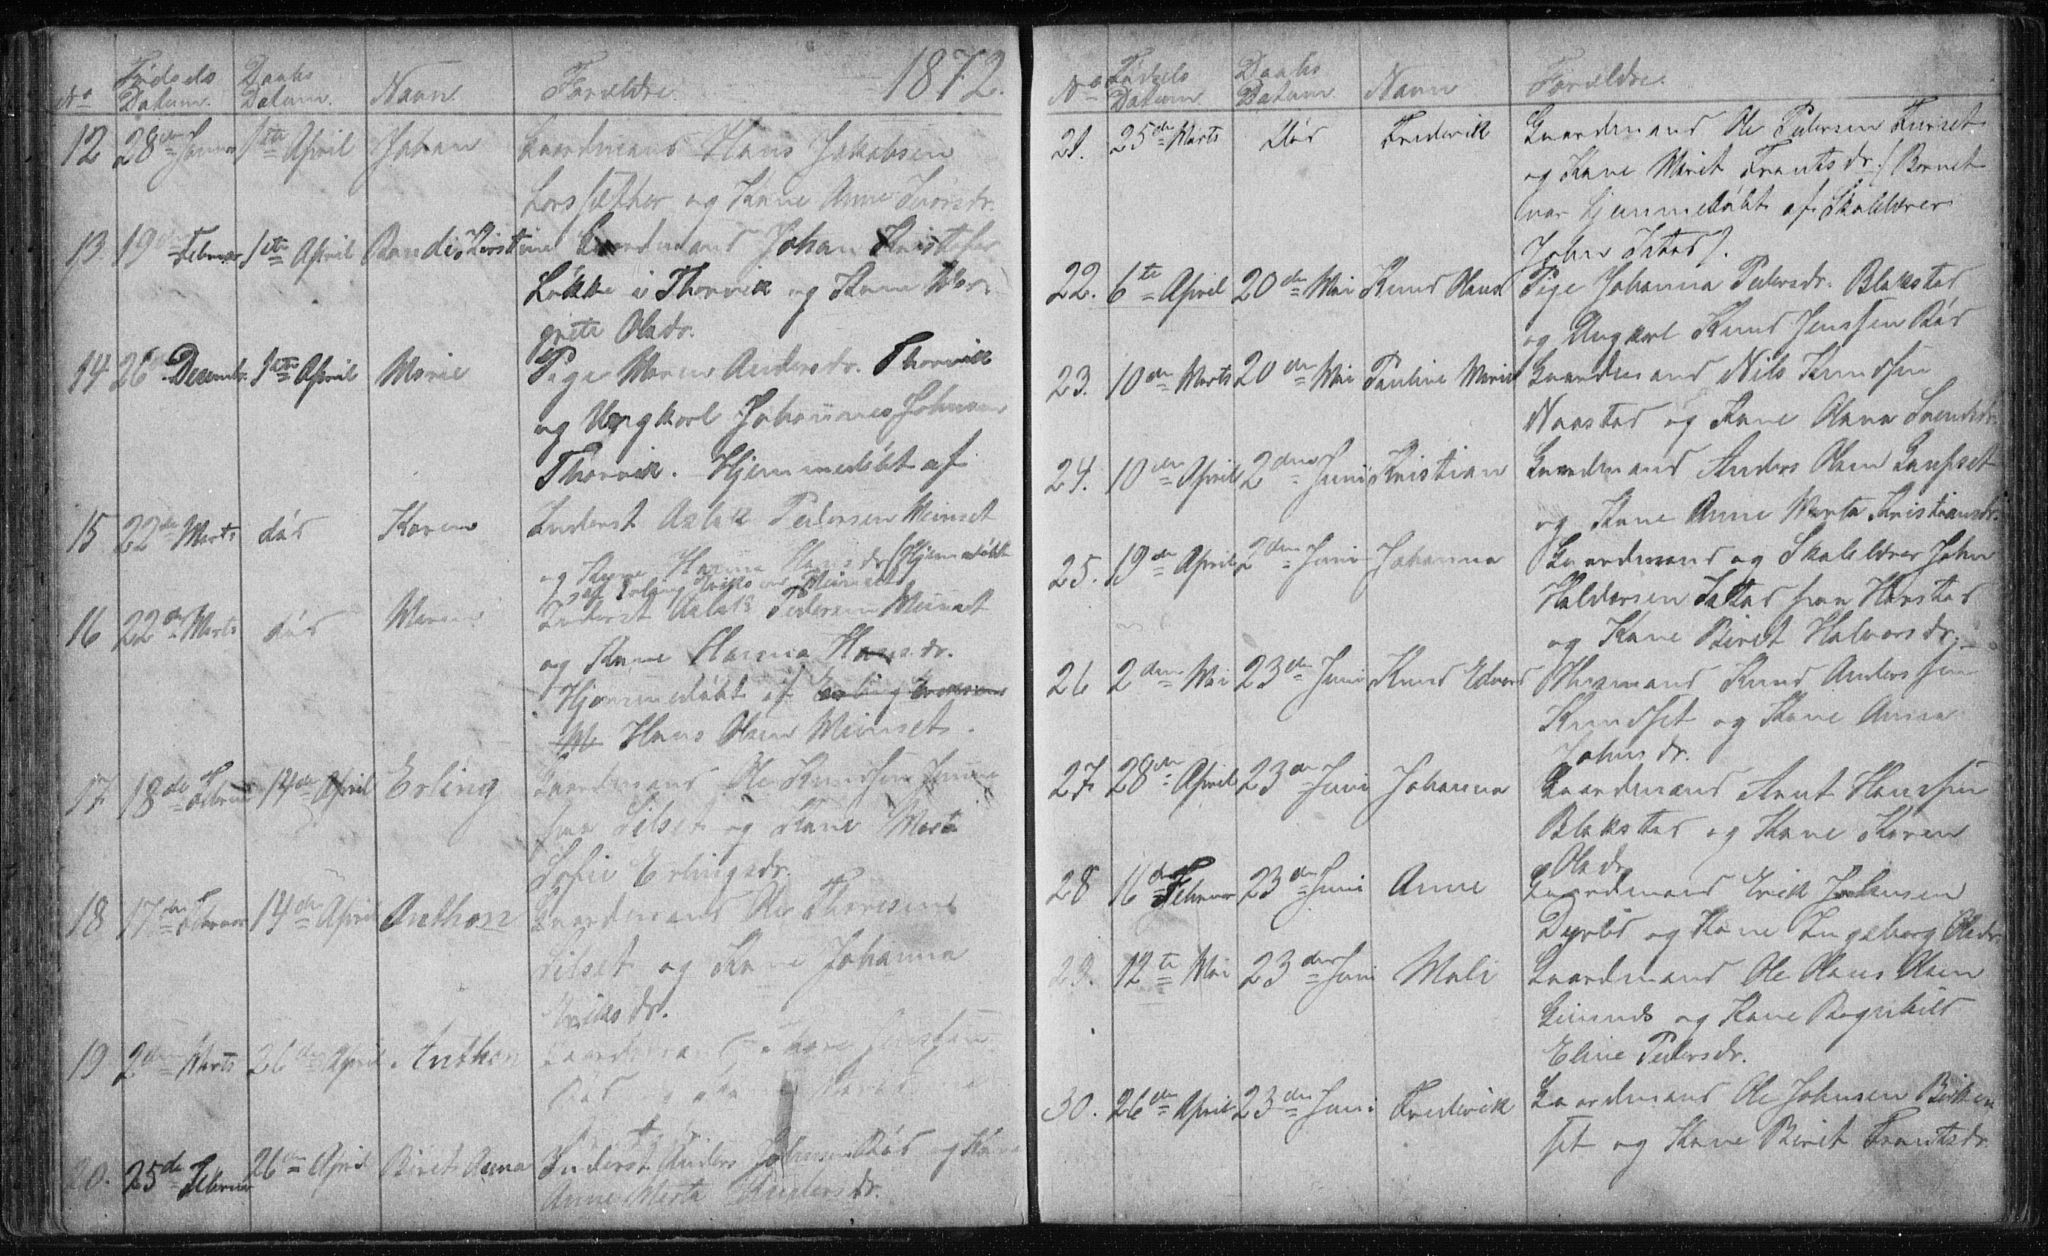 1872.
No Fødsels Datum. Daabs Datum. Navn Forældre
12 28de Januar 1ste April Johan Gaardmand Hans Jakobsen
og Kone Anne
13. 19de Februar 1ste April Randi Kirstine Gaardmand Johan Kristofer
Løkke i Thorvik og Kone Mar-
grete Olsdr.
14 26 Decembr. 1ste April Marie Pige Maren Andersdr. Thorvik
og Ungkarl Johannes Johnsen
Thorvik. Hjemmedøbt af
15 22de Marts død Karen Inderst Aslak Pedersen Meinset
og Kone Hanna Hansdr. (Hjemmedøbt
af Erling Eriksen Meinset)
16 22de Marts død Maren Inderst Aslak Pedersen Meinset
og Kone Hanna Hansdr.
Hjemmedøbt af Erling Eriksen
M Hans Olsen Meinset.
17. 18de Februar 14de April Erling Gaardmand Ole Knudsen
fra Silset og Kone Marta
Sofie Erlingsdr.
18 17de Februar 14de April Anthon Gaardmand Ole Thoresen
Silset og Kone Johanna
Eriksdr.
19 2den Marts 26de April Anthon Gaardmand Thore Jenssen
Rød og Kone
20. 25de Februar 26de April Biret Anna Inderst Anders Johnsen Rød og Kone
Anne Marta Andersdr.
No Fødsels Datum Daabs Datum Navn Forældre
21. 25de Marts død Frederik Gaardmand Ole Pedersen Furset
og Kone Marit Frantsdr. (Barnet
var hjemmedøbt af Skolelærer
John).
22. 6te April 20de Mai Knud Hans Pige Johanna Pedersdr. Blakstad
og Ungkarl Knud Jenssen Rød
23. 10de Marts 20de Mai Pauline Marie Gaardmand Nils Knudsen
Naastad og Kone Olava Svendsdr.
24. 10de April 2den Juni Kristian Gaardmand Anders Olsen Gaupset
og Kone Anne Marta Kristiansdr.
25. 19de April 2den Juni Johanna Gaardmand og Skolelærer John
Haldorsen fra Harstad
og Kone Beret Halvorsdr.
26 2den Mai 23de Juni Knud Edvard Huusmand Knud Anderssen
Knudset og Kone Anna
Johnsdr.
27. 28de April 23de Juni Johanna Gaardmand Arnt Hanssen
Blakstad og Kone Karen
Olsdr.
28 16de Februar 23de Juni Anne Gaardmand Erik Johansen
Dyrlid og Kone Ingeborg Olsdr.
29. 12te Mai 23de Juni Mali Gaardmand Ole Olaus Olsen
og Kone Ragnhild
Eline Pedersdr.
30. 26de April 23de Juni Frederik Gaardmand Ole Johnsen Birken
set og Kone Birit Frantsdr.